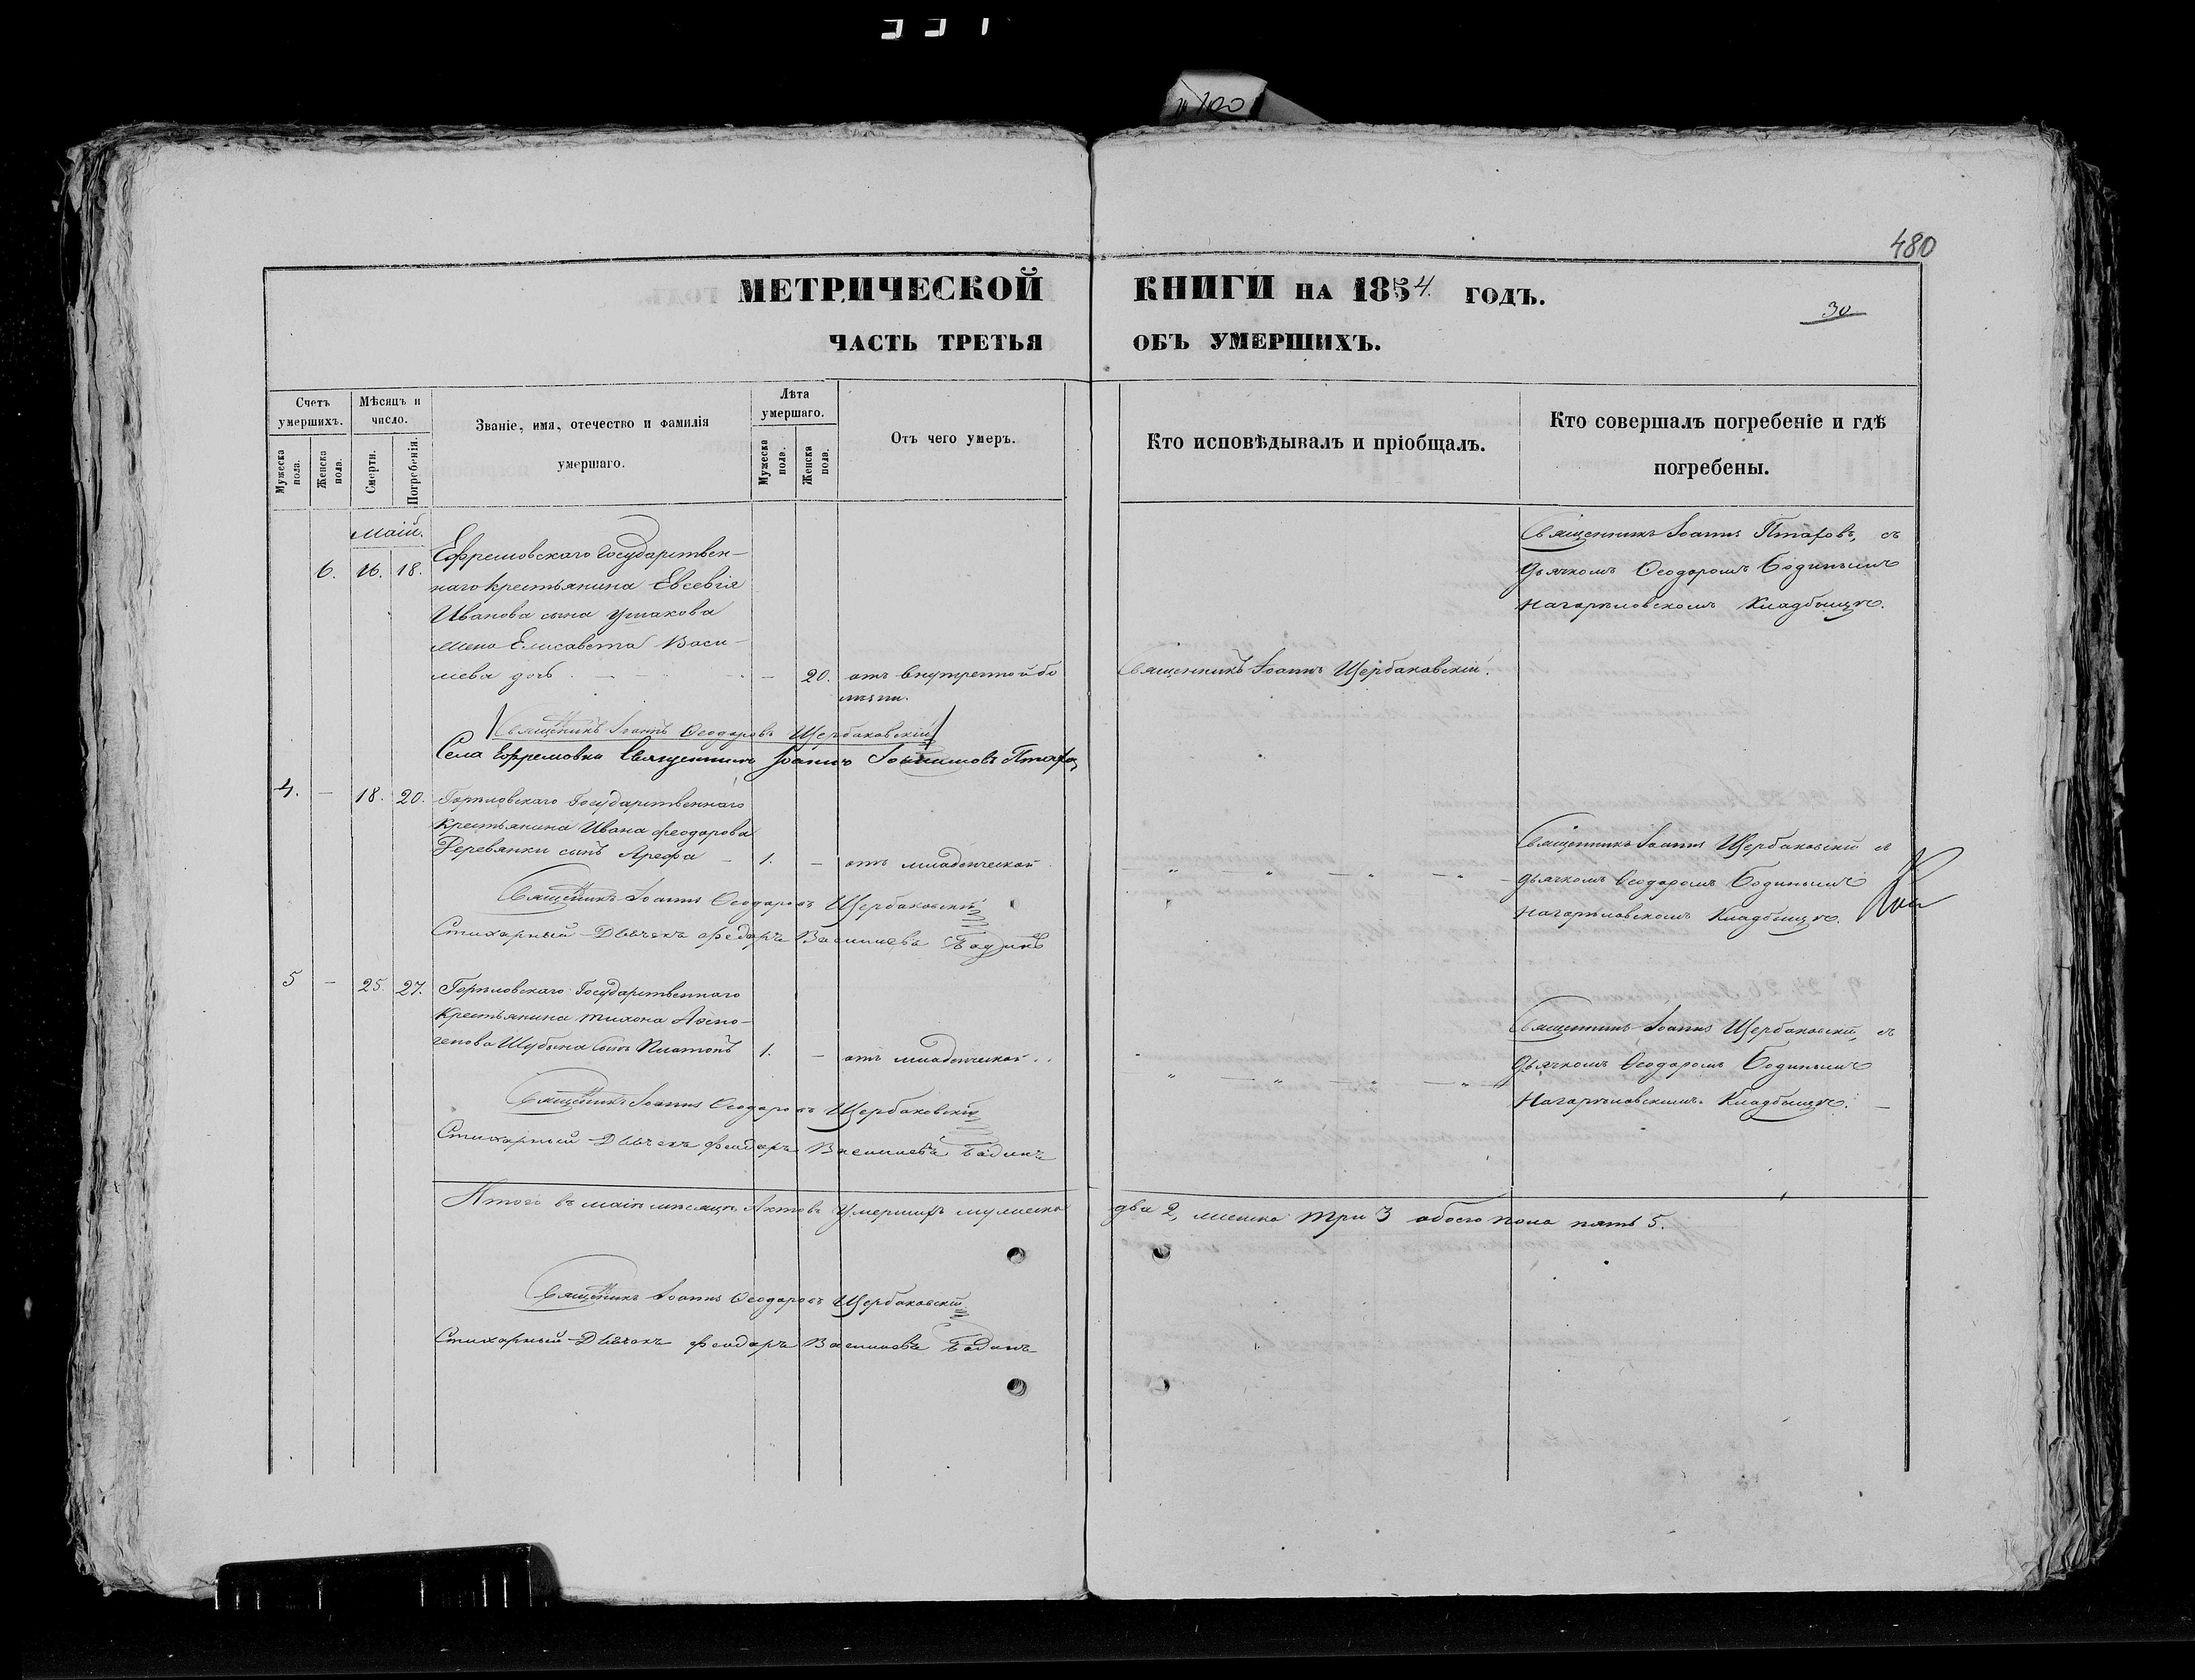 480
МЕТРИЧЕСКОЙ КНИГИ НА 1854. ГОДЪ.
30
ЧАСТЬ ТРЕТЬЯ ОБЪ УМЕРШИХЪ.
Счетъ умершихъ.
Мужеска пола.
Женска пола.
Мѣсяцъ и число.
Смерти.
Погребенія.
Званіе, имя, отечество и фамилія
умершаго.
Лѣта умершаго.
Мужеска пола.
Женска пола.
Отъ чего умеръ.
Кто исповѣдывалъ и пріобщалъ.
Кто совершалъ погребеніе и гдѣ
погребены.
Маій.
6. 16. 18.
Ефремовскаго Государствен-
наго крестьянина Евсевія
Иванова сына Ушакова
жена Елисавета Васи-
лева дочь - - 20. отъ внутренной бо
лѣзни.
Священникъ Іоаннъ Щербаковскій.
Священникъ Іоаннъ Птаховъ, съ
дьячкомъ Ѳеодоромъ Бодинымъ
Нагорѣловскомъ Кладбищѣ.
Священникъ Іоаннъ Ѳеодоровъ Щербаковскій
Села Ефремовки Священникъ Іоаннъ
4. - 18. 20. Горѣловскаго Государственнаго
Крестьянина Ивана Феодорова
Деревянки сынъ Арефа - 1. - отъ младенческой
Священникъ Іоаннъ Щербаковскій съ
дьячкомъ Ѳеодоромъ Бодинымъ
Нагорѣловскомъ Кладбищѣ.
Священникъ Іоаннъ Ѳеодоровъ Щербаковскій
Стихарный Дьячекъ Федаръ Василиевъ Бадинъ
5 - 25. 27. Горѣловскаго Государственнаго
Крестьянина Тихона Афено-
генова Шубина сынъ Платонъ 1. - отъ младенческой.
Священникъ Іоаннъ Щербаковскій, съ
дьячкомъ Ѳеодоромъ Бодинымъ
Нагорѣловскимъ Кладбищѣ.
Священникъ Іоаннъ Ѳеодоровъ Щербаковскій
Стихарный Дьячекъ Феодаръ Василиевъ Бадинъ
Итого въ маіи мѣсяцѣ Актовъ умершихъ мужеска два 2, женска три 3 обоего пола пять 5.
Священникъ Іоаннъ Ѳеодоровъ Щербаковскій
Стихарный Дьячекъ Феодаръ Василиевъ Бадинъ